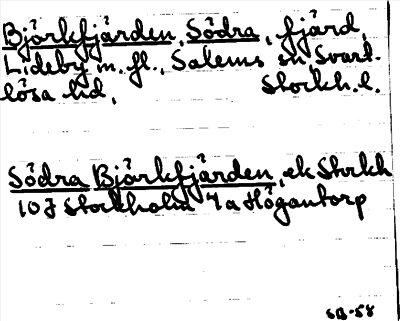 Björkfjärden, Södra, fjärd,
Lideby m. fl., Salems sn, Svart-
lösa hd, Stockh. l.
Södra Björkfjärden, ek Stckh
10 J Stockholm 4 a Högantorp
SB-58